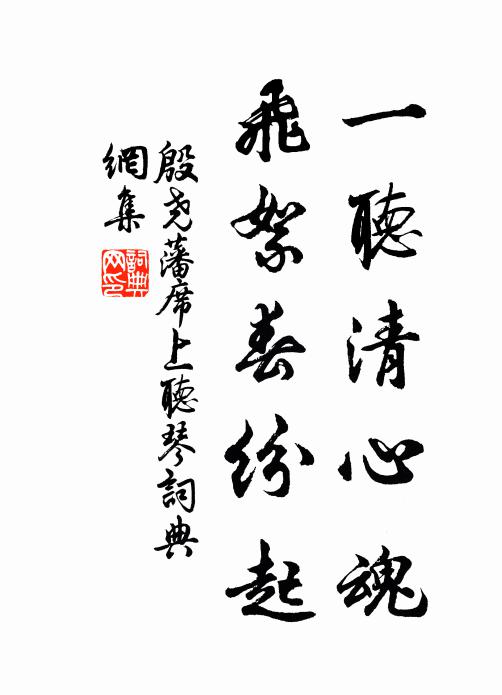 一聽清心魂
飛絮春紛起
殷尧藩席上聽琴詞典
網集
詞典网印